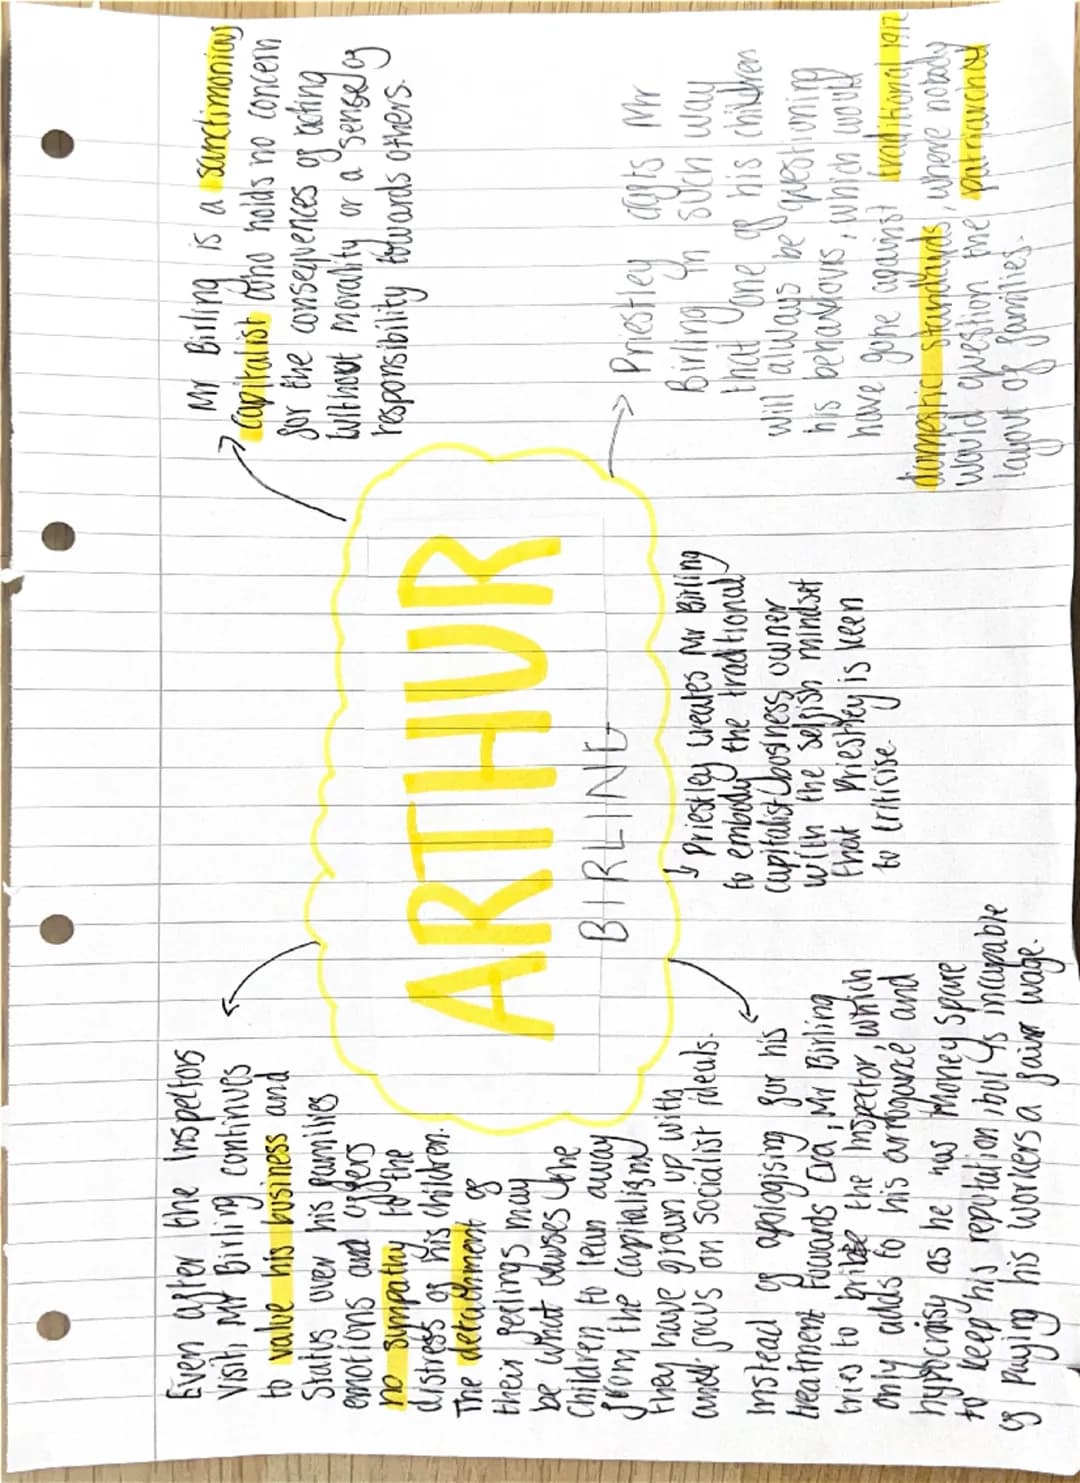 Even after the Inspectors
visit, Mr Birling continues
to value his business and
Status over his families
emotions and offers
no sympathy to the
distress of his children.
The detachment of
their feelings may
be what causes the
children to lean away
from the capitalism
they have grown up with
and focus on socialist ideals.
Mr Birling is a sanctimonious
capitalist who holds no concern
for the consequences of acting
without morality or a sense of
responsibility towards others.
ARTHUR
BIRLING
Instead of apologising for his
treatment towards Eva, Mr Birling
tries to bribe the Inspector, which
only adds to his arrogance and
hypocrisy as he has money spare
to keep his reputation, but is incapable
of paying his workers a fair wage.
↳ Priestley creates Mr Birling
to embody the traditional
capitalist business owner
with the selfish mindset
that Priestley is keen
to criticise.
Priestley crafts Mr
Birling in such way
that one of his children
will always be questioning
his behaviours, which would
have gone against traditional 1912
domestic standards, where nobody
would question the patriarchal
layout of families.